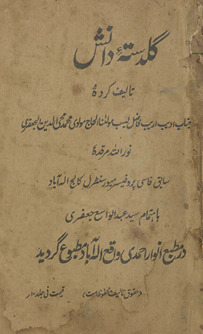 گلدستۂ دانش
تالیف کردۂ
جناب ادیب اریب فاضل لبیب مولانا الحاج مولوی محمد محی الدین جعفری
نور اللہ مرقدہٗ
سابق فارسی پروفیسر میور سنٹرل کالج الہ آباد
باہتمام سید عبدالواسع جعفری
در مطبع انوار احمدی واقع الہ آباد مطبوع گردید
حقوق تالیف محفوظ است
قیمت فی جلد